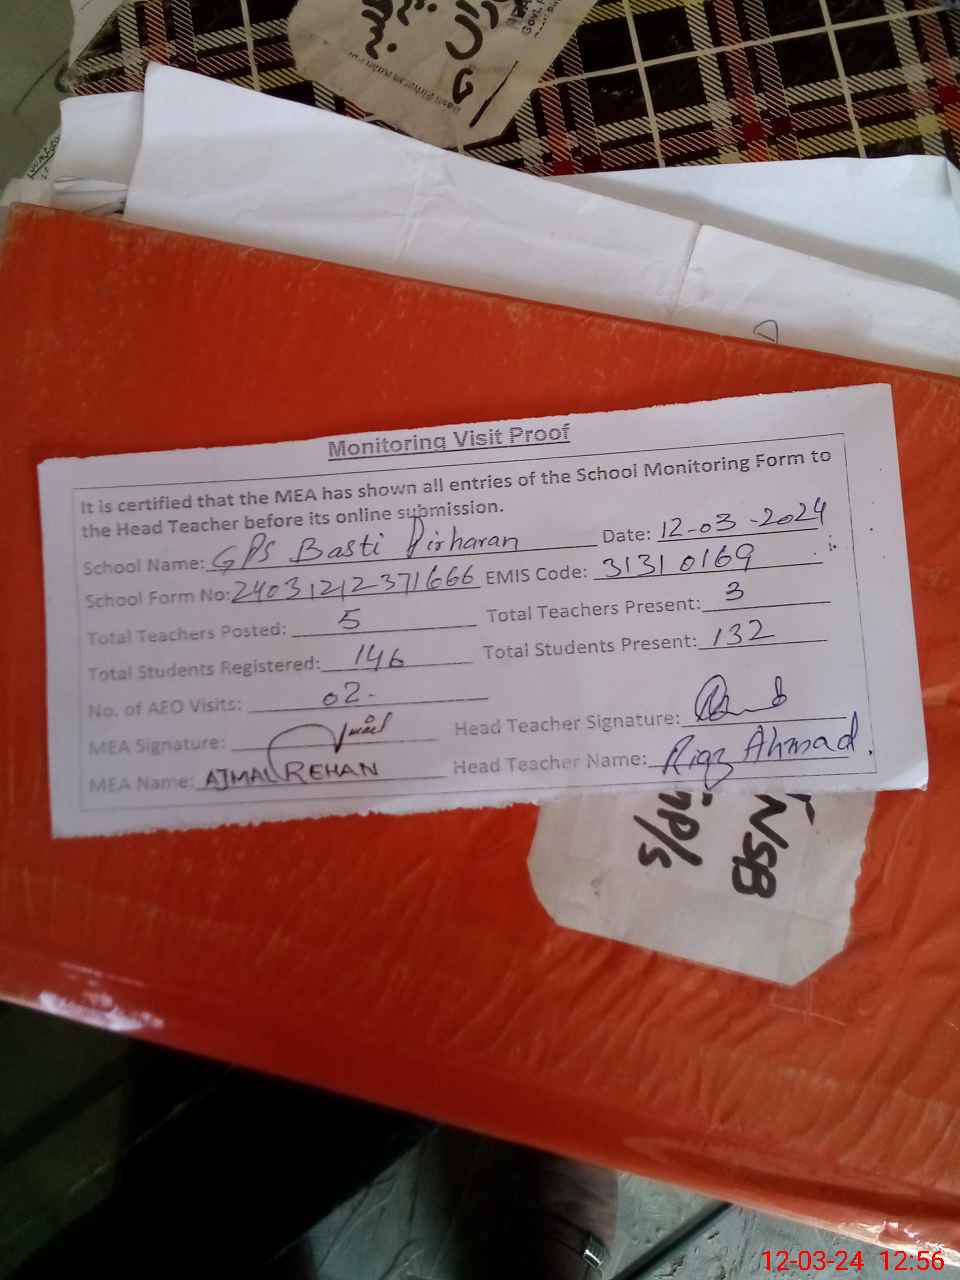 Monitoring Visit Proof
It is certified that the MEA has shown all entries of the School Monitoring Form to
the Head Teacher before its online submission.
School Name: GPS Basti Pirharan Date: 12-03-2024
School Form No: 24031212371666 EMIS Code: 31310169
Total Teachers Posted: 5 Total Teachers Present: 3
Total Students Registered: 146 Total Students Present: 132
No. of AEO Visits: 02-
MEA Signature: Head Teacher Signature:
MEA Name: AJMAL REHAN Head Teacher Name: Riaz Ahmad.
NSB
12-03-24 12:56